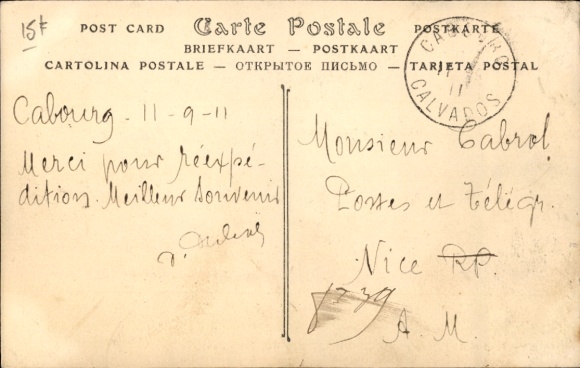 15f
POST CARD Carte Postale POSTKARTE
BRIEFKAART — POSTKAART
CARTOLINA POSTALE — ОТКРЫТОЕ ПИСЬМО — TARJETA POSTAL
CABOURG
11
CALVADOS
Cabourg - 11-9-11
Merci pour réexpé-
dition. Meilleur souvenir
Monsieur Cabrol
Postes et Télégr.
Nice RP.
A. M.